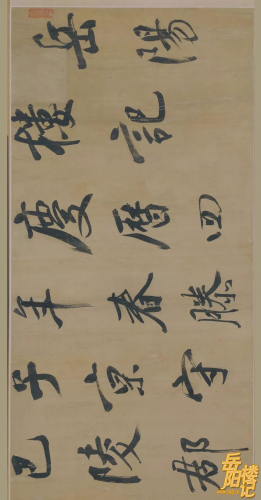 岳陽
樓記
慶曆四
年春滕
子京守
巴陵郡
岳阳楼记